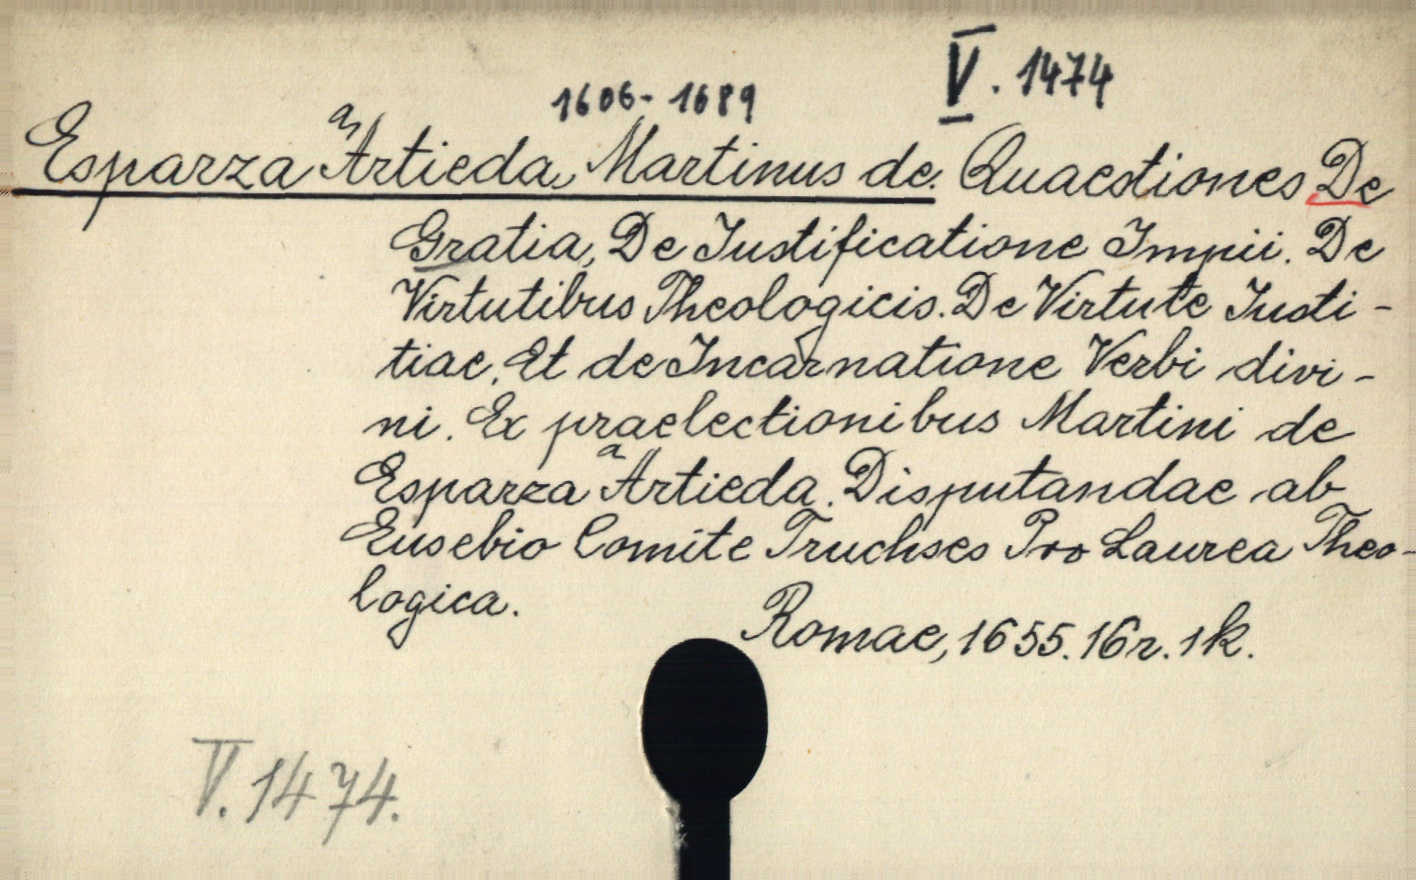 V. 1474
1606-1689
Esparza a Artieda, Martinus de. Quaestiones De
Gratia, De Iustificatione Impii. De
Virtutibus Theologicis. De Virtute Iusti-
tiae. Et de Incarnatione Verbi divi-
ni. Ex praelectionibus Martini de
Esparza a Artieda. Disputandae ab
Eusebio Comite Truchses Pro Laurea Theo-
logica.
Romae, 1655. 16r. 1k.
V. 1474.